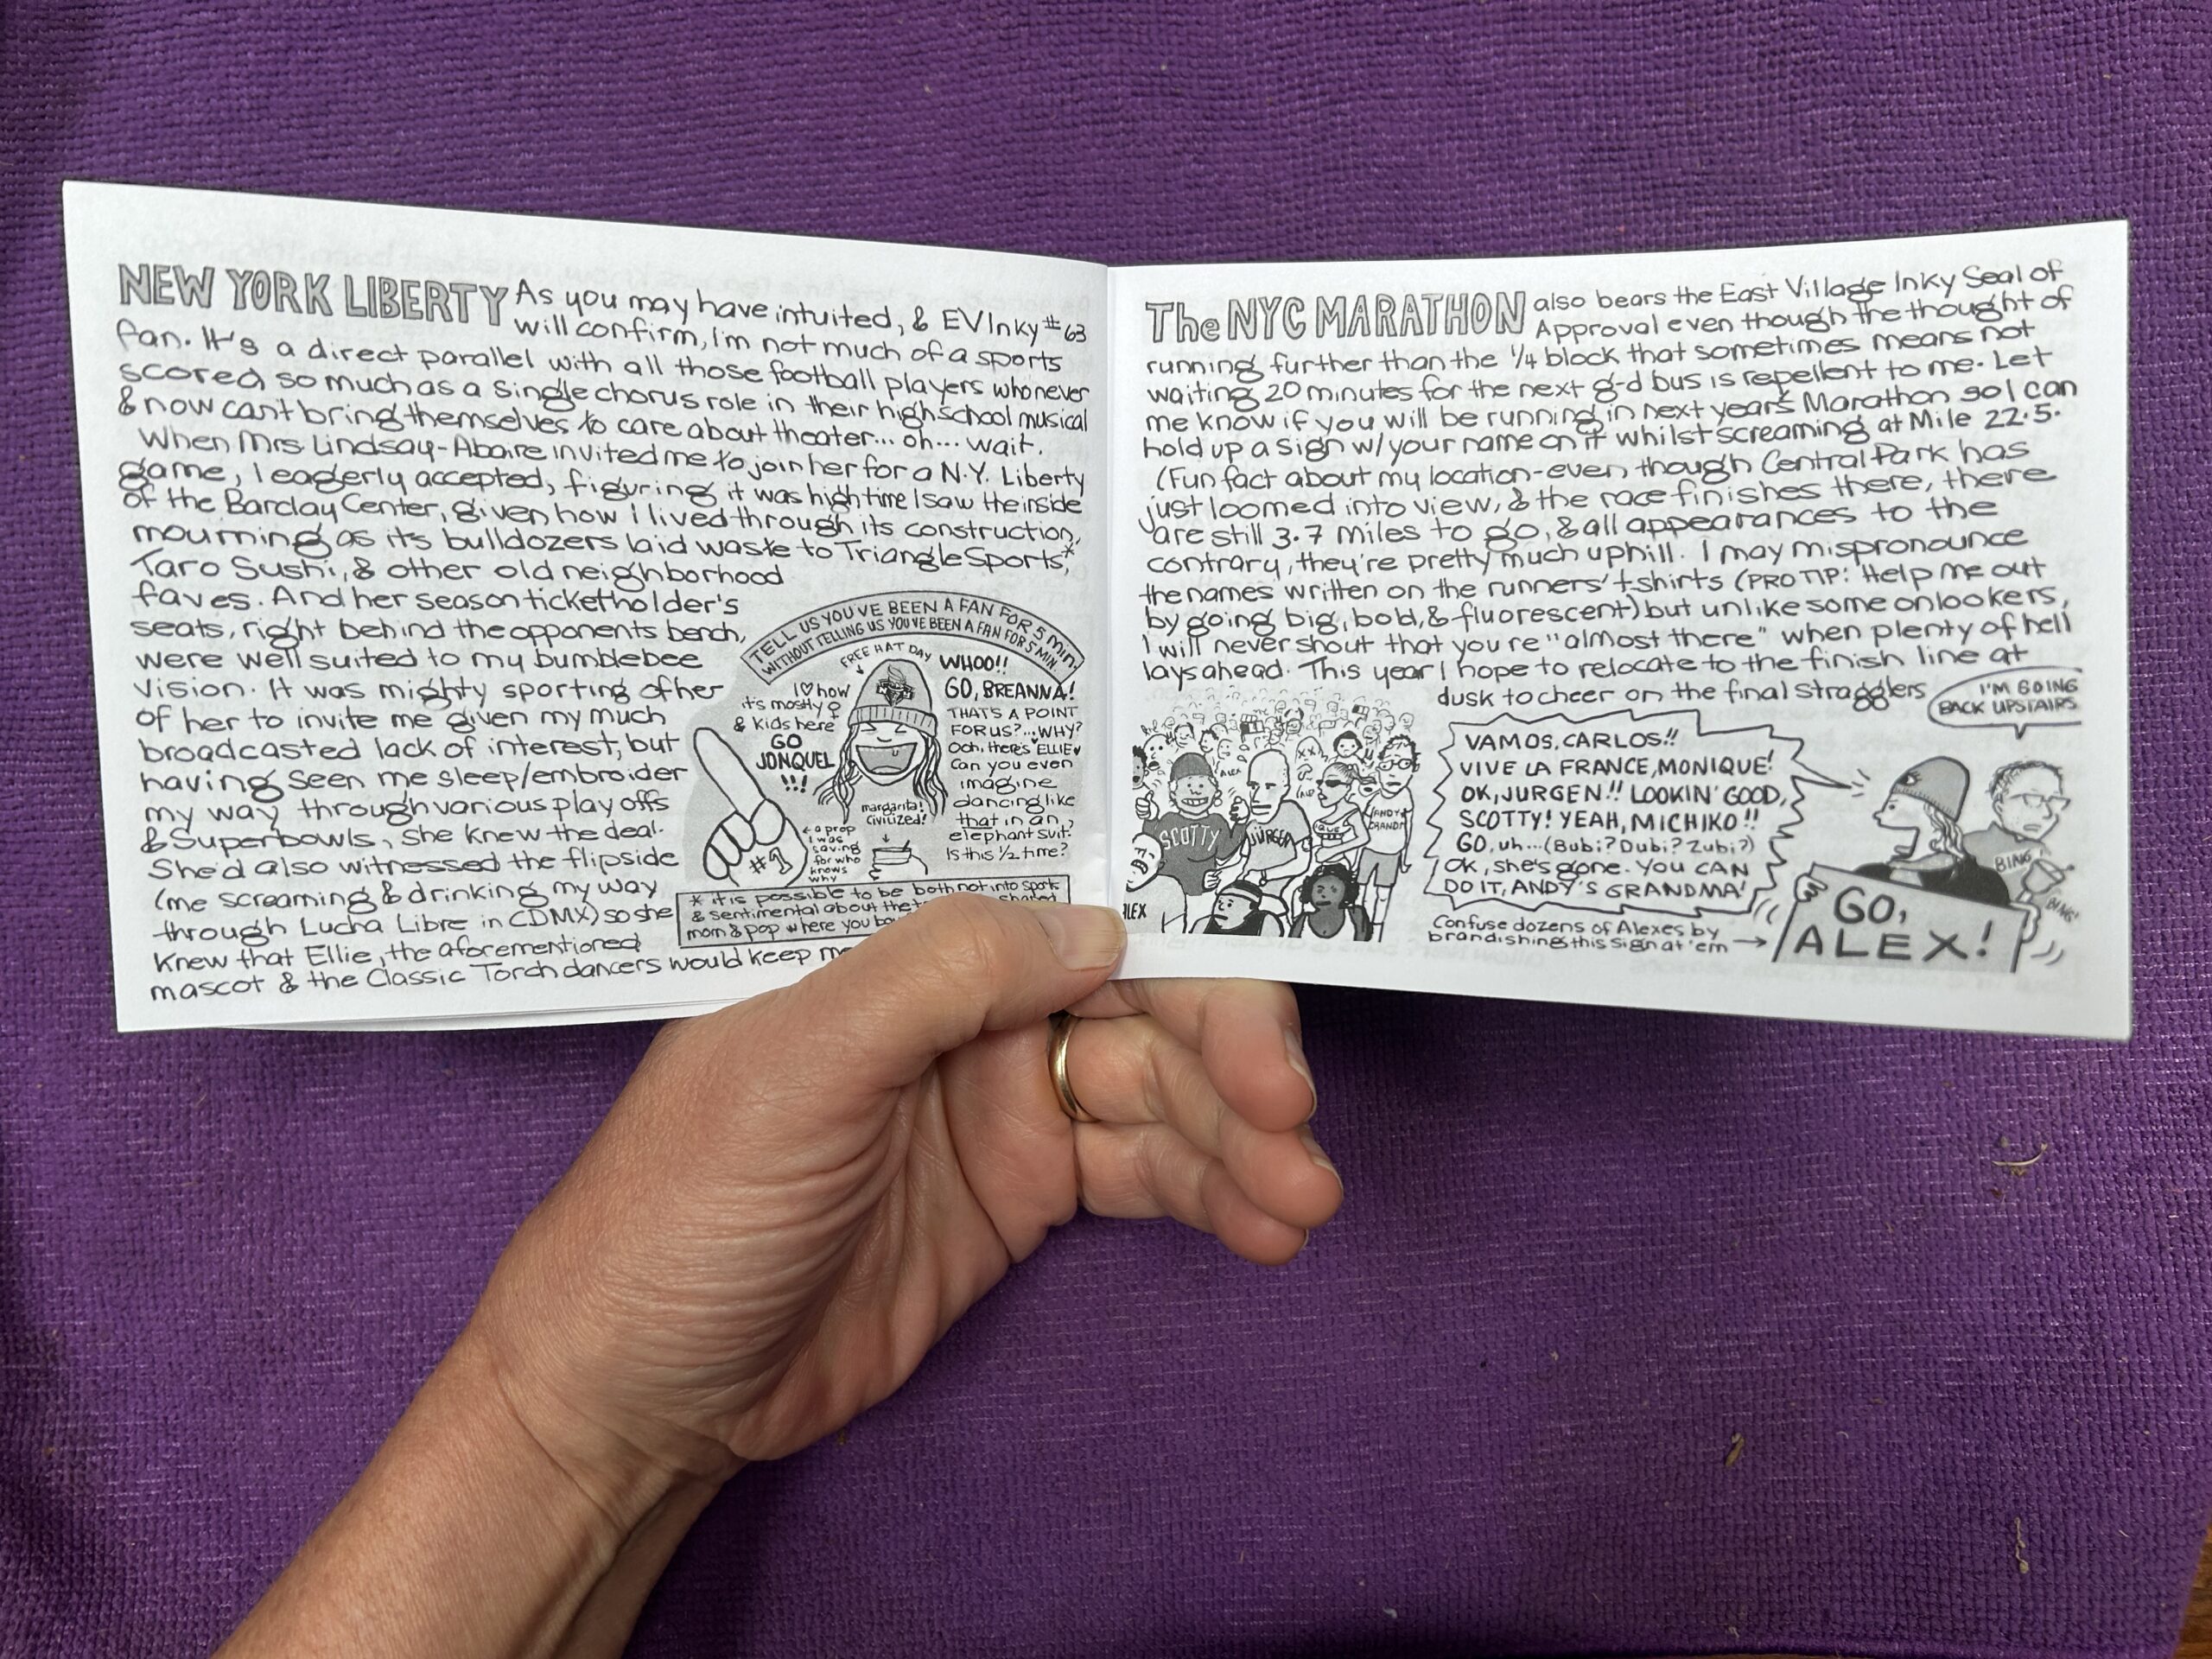 NEW YORK LIBERTY As you may have intuited, & EV Inky #63
will confirm, I'm not much of a sports
fan. It's a direct parallel with all those football players who never
scored so much as a single chorus role in their high school musical
& now can't bring themselves to care about theater... oh... wait.
When Mrs. Lindsay-Abaire invited me to join her for a N.Y. Liberty
game, I eagerly accepted, figuring it was high time I saw the inside
of the Barclay Center, given how I lived through its construction,
mourning as its bulldozers laid waste to Triangle Sports,*
Taro Sushi, & other old neighborhood
faves. And her season ticketholder's
seats, right behind the opponents bench,
were well suited to my bumblebee
vision. It was mighty sporting of her
of her to invite me given my much
broadcasted lack of interest, but
having seen me sleep/embroider
my way through various play offs
& Superbowls, she knew the deal.
She'd also witnessed the flipside
(me screaming & drinking my way
through Lucha Libre in CDMX) so she
knew that Ellie, the aforementioned
mascot & the Classic Torch dancers would keep
TELL US YOU'VE BEEN A FAN FOR 5 MIN.
WITHOUT TELLING US YOU'VE BEEN A FAN FOR 5 MIN.
FREE HAT DAY
I ♡ how
it's mostly ♀
& kids here
GO
JONQUEL
!!!
WHOO!!
GO, BREANNA!
THAT'S A POINT
FOR US?...WHY?
Ooh, there's ELLIE♥
Can you even
imagine
dancing like
that in an
elephant suit.
Is this 1/2 time?
margarita!
civilized!
← a prop
I was
saving
for who
knows
why
#1
* it is possible to be both not into sports
& sentimental about the
mom & pop where you
The NYC MARATHON also bears the East Village Inky Seal of
Approval even though the thought of
running further than the 1/4 block that sometimes means not
waiting 20 minutes for the next g-d bus is repellent to me. Let
me know if you will be running in next year's Marathon so I can
hold up a sign w/your name on it whilst screaming at Mile 22.5.
(Fun fact about my location - even though Central Park has
just loomed into view, & the race finishes there, there
are still 3.7 miles to go, & all appearances to the
contrary, they're pretty much uphill. I may mispronounce
the names written on the runners' t-shirts (PRO TIP: Help me out
by going big, bold, & fluorescent) but unlike some onlookers,
I will never shout that you're "almost there" when plenty of hell
lays ahead. This year I hope to relocate to the finish line at
dusk to cheer on the final stragglers
I'M GOING
BACK UPSTAIRS
VAMOS, CARLOS!!
VIVE LA FRANCE, MONIQUE!
OK, JURGEN!! LOOKIN' GOOD,
SCOTTY! YEAH, MICHIKO!!
GO, uh...(Bubi? Dubi? Zubi?)
Ok, she's gone. YOU CAN
DO IT, ANDY'S GRANDMA!
Confuse dozens of Alexes by
brandishing this sign at 'em →
SCOTTY
JÜRGEN
ALEX
BING!
BING!
GO,
ALEX!